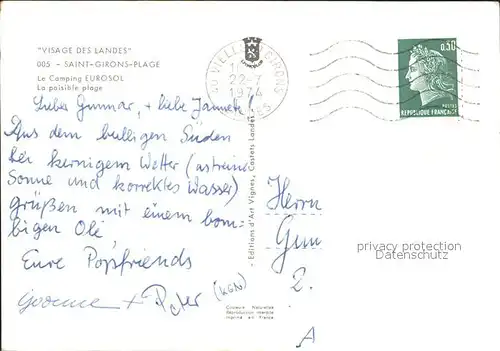 "VISAGE DES LANDES"
005 - SAINT-GIRONS-PLAGE
Le Camping EUROSOL
La paisible plage
22-7
1974
0,50
POSTES
REPUBLIQUE FRANÇAISE
Lieber Gunnar, + liebe Jannette!
Aus dem bulligen Süden
bei kernigem Wetter (astreine
Sonne und korrektes Wasser)
grüßen mit einem bom-
bigen Olé
Eure Popsfriends
Yvonne + Peter (KGN)
- Editions d'Art Vignes, Castets Landes -
Herrn
Gun
2.
A
privacy protection
Datenschutz
Couleurs Naturelles
Reproduction interdite
Imprimé en France